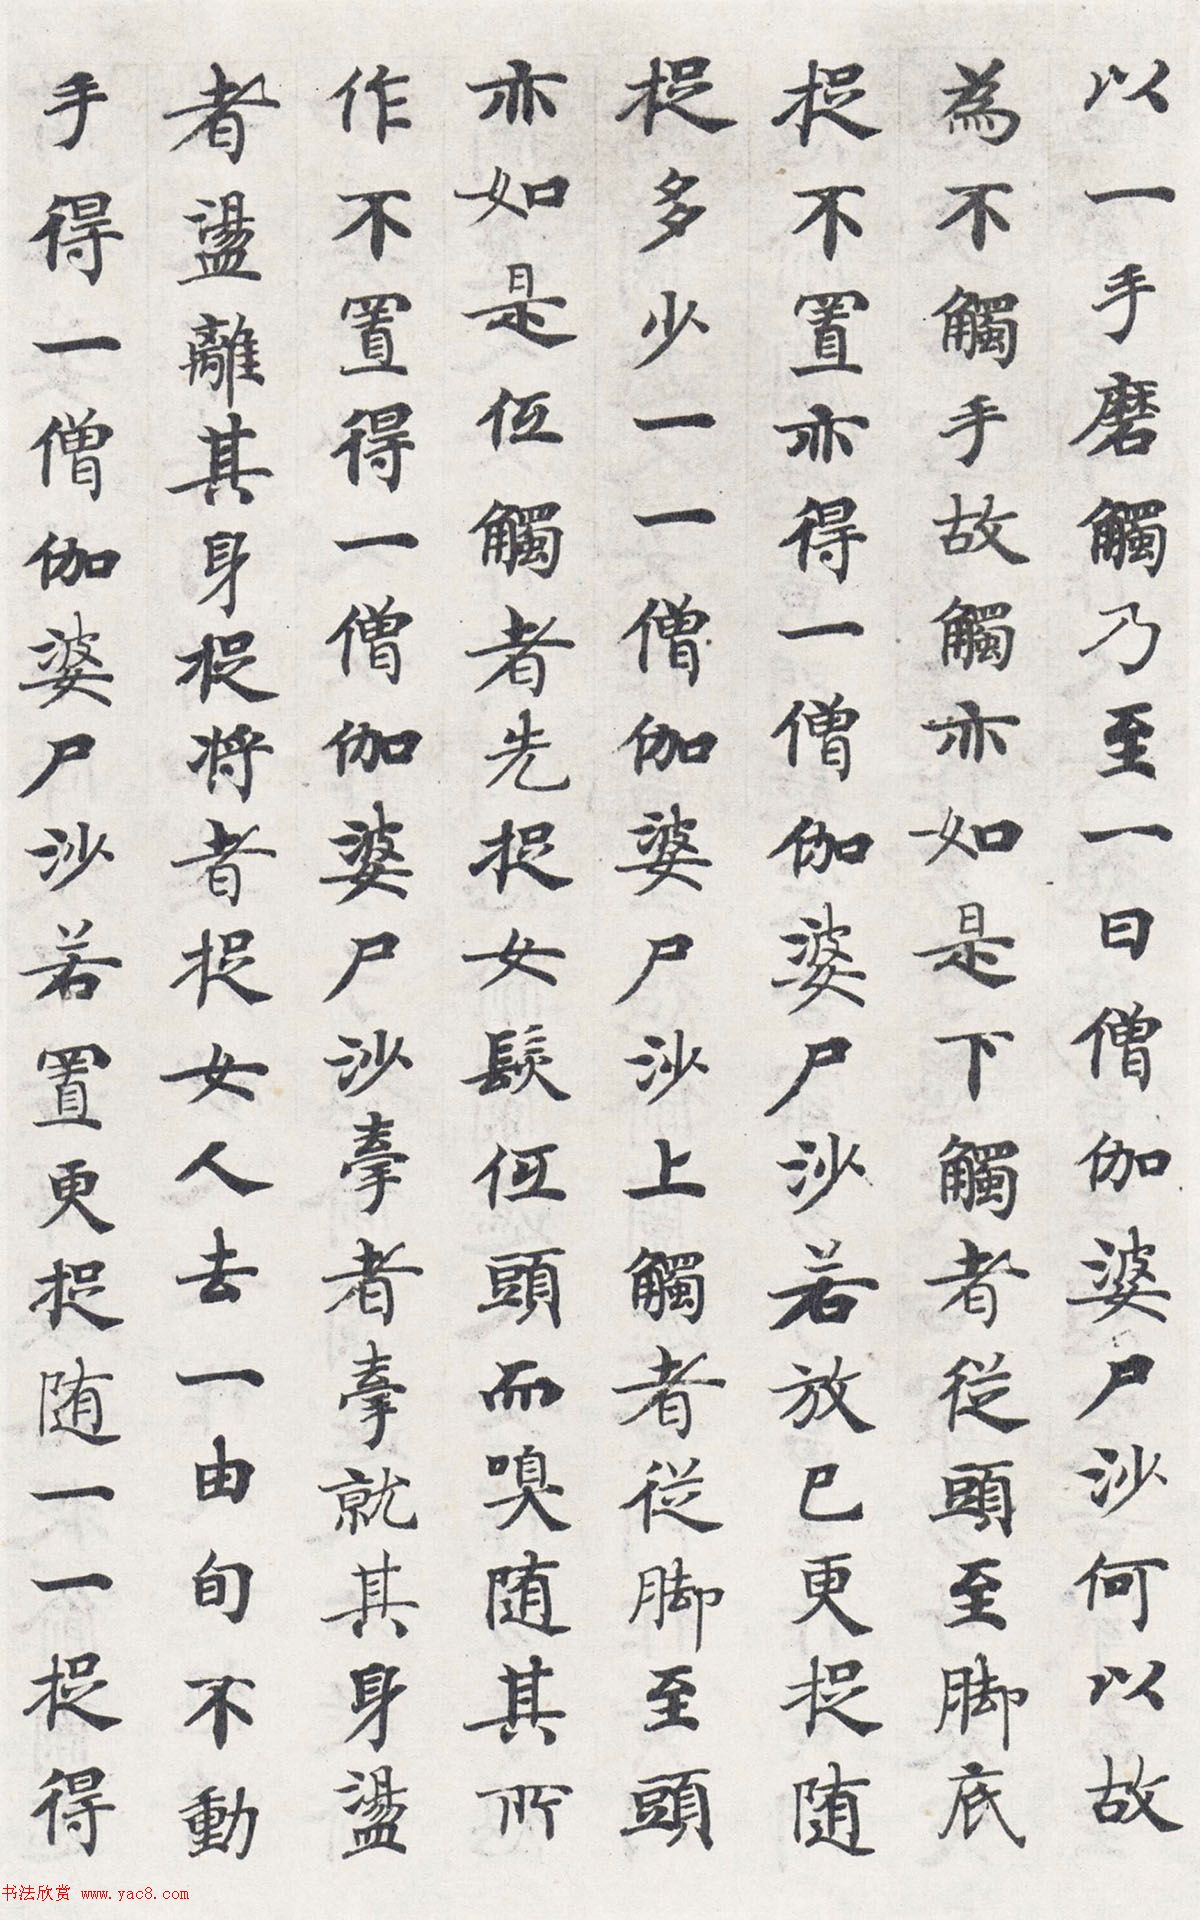 以一手磨觸乃至一日僧伽婆尸沙何以故
為不觸手故觸亦如是下觸者從頭至脚底
捉不置亦得一僧伽婆尸沙若放已更捉随
捉多少一一僧伽婆尸沙上觸者從脚至頭
亦如是仾觸者先捉女髮仾頭而嗅随其所
作不置得一僧伽婆尸沙擧者擧就其身盪
者盪離其身捉将者捉女人去一由旬不動
手得一僧伽婆尸沙若置更捉随一一捉得
书法欣赏 www.yac8.com